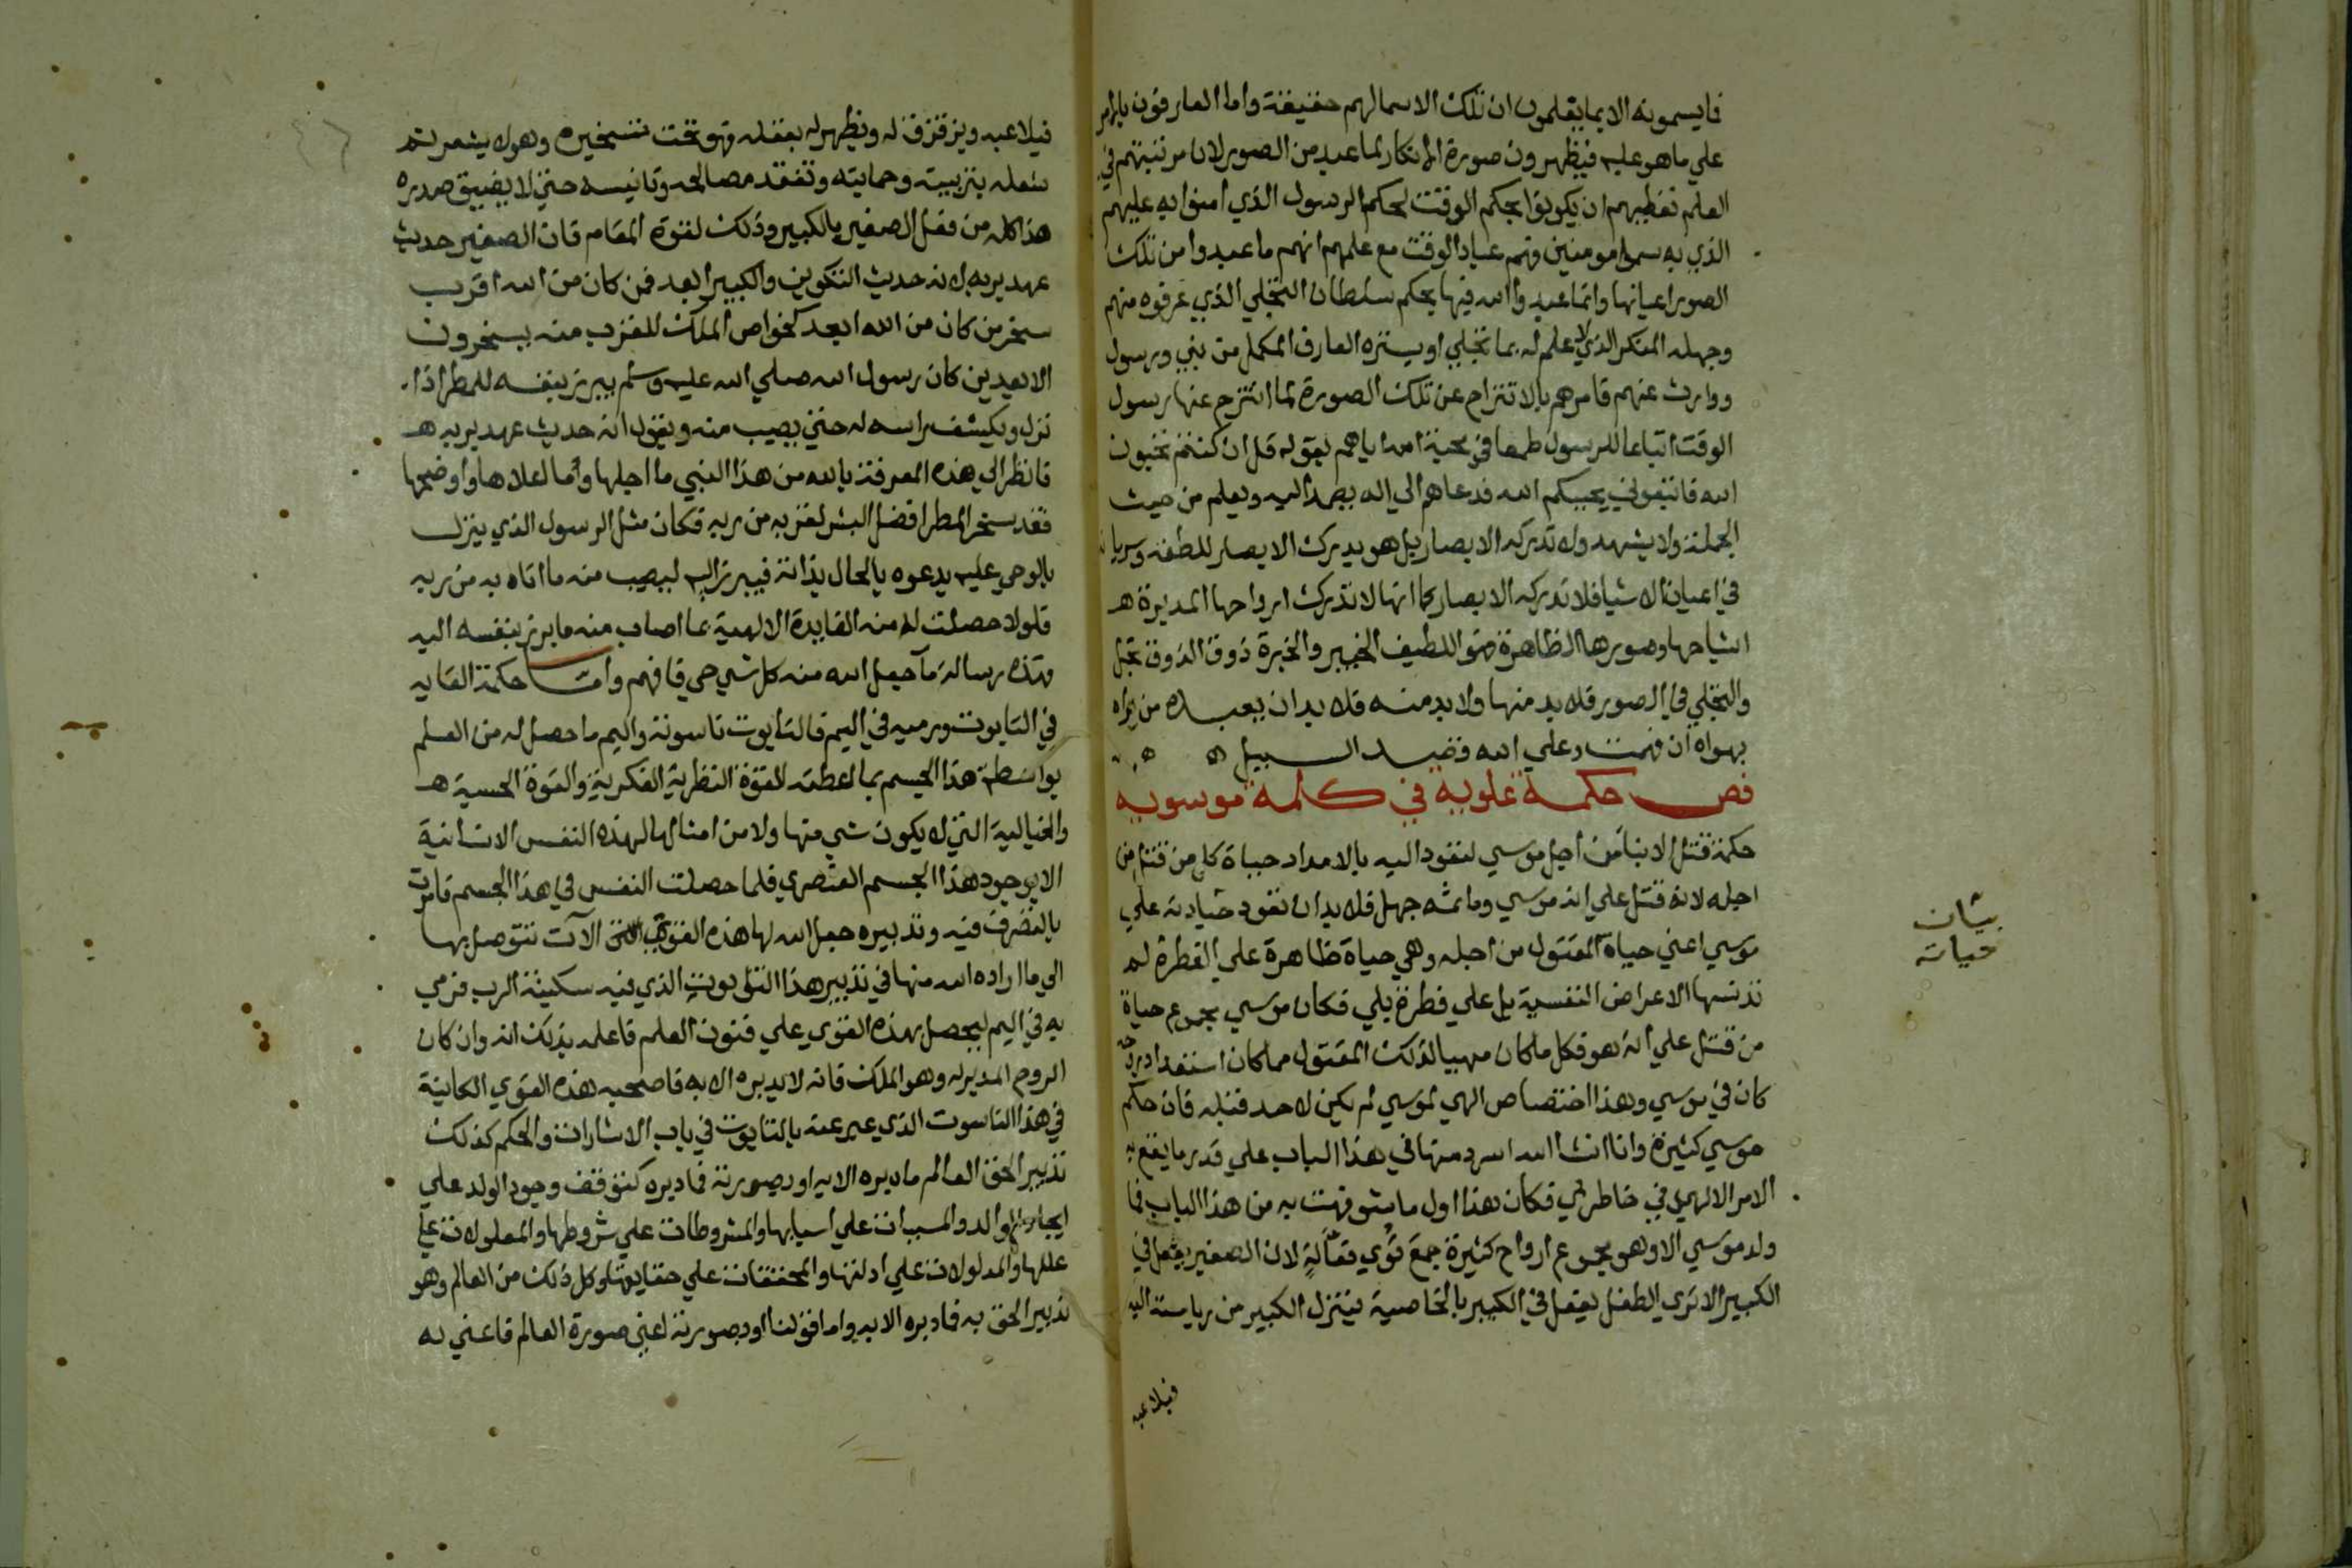 فايسمونه الا بما يعلمون ان تلك الاسما لهم حقيقة واما العارفون بالامر
علي ماهو عليه فيظهرون صورة الانكار لما عبد من الصور لان مرتبتهم في
العلم تعطيهم ان يكونوا بحكم الوقت لحكم الرسول الذي امنوا به عليهم
الذي به سموا مومنين فهم عباد الوقت مع علمهم انهم ما عبدوا من تلك
الصور اعيانها وانما عبدوا الله فيها بحكم سلطان التجلي الذي عرفوه منهم
وجهله المنكر الذي لا علم له بما تجلي او يستره العارف المكمل من نبي ورسول
ووارث عنهم فامرهم بالانتزاح عن تلك الصورة لما انتزح عنها رسول
الوقت اتباعا للرسول طمعا في محبة الله اياهم بقوله قل ان كنتم تحبون
الله فاتبعوني يحببكم الله فدعاهم الي اله يصمد اليه ويعلم من حيث
الجملة ولا يشهد ولا تدركه الابصار بل هو يدرك الابصار للطفه وسريانه
في اعيان الاشيا فلا تدركه الابصار كما انها لا تدرك ارواحها المدبرة هـ
اشباحها وصورها الظاهرة فهو اللطيف الخبير والخبرة ذوق الذوق تجل
والتجلي في الصور فلا بد منها ولا بد منه فلا بد ان يعبده من يراه
بهواه ان فهمت وعلي الله قصد السبيل ه ه
فص حكمة علوية في كلمة موسوية
حكمة قتل الابنا من اجل موسي لتعود اليه بالامداد حياة كل من قتل من
اجله لانه قتل علي انه موسي وما ثمه جهل فلا بد ان تعود حياته علي
موسي اعني حياة المقتول من اجله وهي حياة ظاهرة علي الفطرة لم
تدنسها الاعراض النفسية بل علي فطرة بلي فكان موسي مجموع حياة
من قتل علي انه هو فكل ما كان مهيا لذلك المقتول مما كان استعداد روحه
كان في موسي وهذا اختصاص الهي لموسي لم يكن لاحد قبله فان حكم
موسي كثيرة وانا ان شا الله اسرد منها في هذا الباب علي قدر ما يقع به
الامر الالهي في خاطري فكان هذا اول ما شوفهت به من هذا الباب فما
ولد موسي الا وهو مجموع ارواح كثيرة جمع قوي فعالة لان الصغير يفعل في
الكبير الا تري الطفل يفعل في الكبير بالخاصية فينزل الكبير من رياسته اليه
فيلاعبه
بيان
حياته
فيلاعبه ويزقزق له ويظهر له بعقله فهو تحت تسخيره وهو لا يشعر ثم
شغله بتربيته وحمايته وتفقد مصالحه وتانيسه حتي لا يضيق صدره
هذا كله من فعل الصغير بالكبير وذلك لقوة المقام فان الصغير حديث
عهد بربه لانه حديث التكوين والكبير ابعد فمن كان من الله اقرب
سخر من كان من الله ابعد كخواص الملك للقرب منه يسخرون
الابعدين كان رسول الله صلي الله عليه وسلم يبرز بنفسه للمطر اذا
نزل ويكشف راسه له حتي يصيب منه ويقول انه حديث عهد بربه هـ
فانظر الي هذه المعرفة بالله من هذا النبي ما اجلها وما اعلاها واوضحها
فقد سخر المطر افضل البشر لقربه من ربه فكان مثل الرسول الذي ينزل
بالوحي عليه يدعوه بالحال بذاته فيبرز اليه ليصيب منه ما اتاه به من ربه
فلولا حصلت له منه الفايدة الالهية بما اصاب منه ما برز بنفسه اليه
فهذه رسالة ما جعل الله منه كل شي حي فافهم واما حكمة القايه
في التابوت ورميه في اليم فالتابوت ناسوته واليم ما حصل له من العلم
بواسطة هذا الجسم بما اعطته القوة النظرية الفكرية والقوة الحسية هـ
والخيالية التي لا يكون شي منها ولا من امثالها لهذه النفس الانسانية
الا بوجود هذا الجسم العنصري فلما حصلت النفس في هذا الجسم فامرت
بالتصرف فيه وتدبيره جعل الله لها هذه القوي الات تتوصل بها
الي ما اراده الله منها في تدبير هذا التابوت الذي فيه سكينة الرب فرمي
به في اليم ليحصل بهذه القوي علي فنون العلم فاعلمه بذلك انه وان كان
الروح المدبر له وهو الملك فانه لا يدبره الا به فاصحبه هذه القوي الكاينة
في هذا الناسوت الذي عبر عنه بالتابوت في باب الاشارات والحكم كذلك
تدبير الحق العالم ما دبره الا به او بصورته فما دبره كتوقف وجود الولد علي
ايجاد الوالد والمسببات علي اسبابها والمشروطات علي شروطها والمعلولات علي
عللها والمدلولات علي ادلتها والمحققات علي حقايقها وكل ذلك من العالم وهو
تدبير الحق به فما دبره الا به واما قولنا او بصورته اعني صورة العالم فاعني به